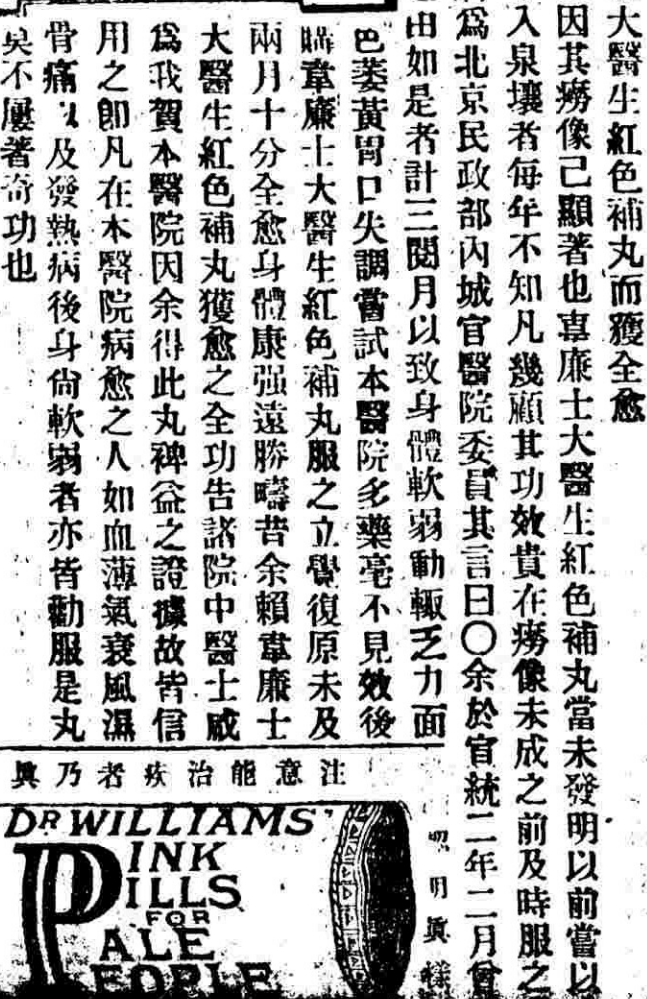 大醫生紅色補丸而獲全愈
因其癆像己顯著也韋廉士大醫生紅色補丸當未發明以前嘗以
入泉壤者每年不知凡幾顧其功效貴在癆像未成之前及時服之
爲北京民政部內城官醫院委員其言曰〇余於宣統二年二月曾
由如是者計三閱月以致身體軟弱動輒乏力面
色萎黃胃口失調嘗試本醫院多藥毫不見效後
購韋廉士大醫生紅色補丸服之立覺復原未及
兩月十分全愈身體康强遠勝疇昔余賴韋廉士
大醫生紅色補丸獲愈之全功告諸院中醫士咸
爲我賀本醫院因余得此丸裨益之證據故皆信
用之卽凡在本醫院病愈之人如血薄氣衰風濕
骨痛以及發熱病後身尙軟弱者亦皆勸服是丸
矣不屢著奇功也
注意能治疾者乃真
明真樣
DR WILLIAMS'
PINK
PILLS
FOR
PALE
PEOPLE